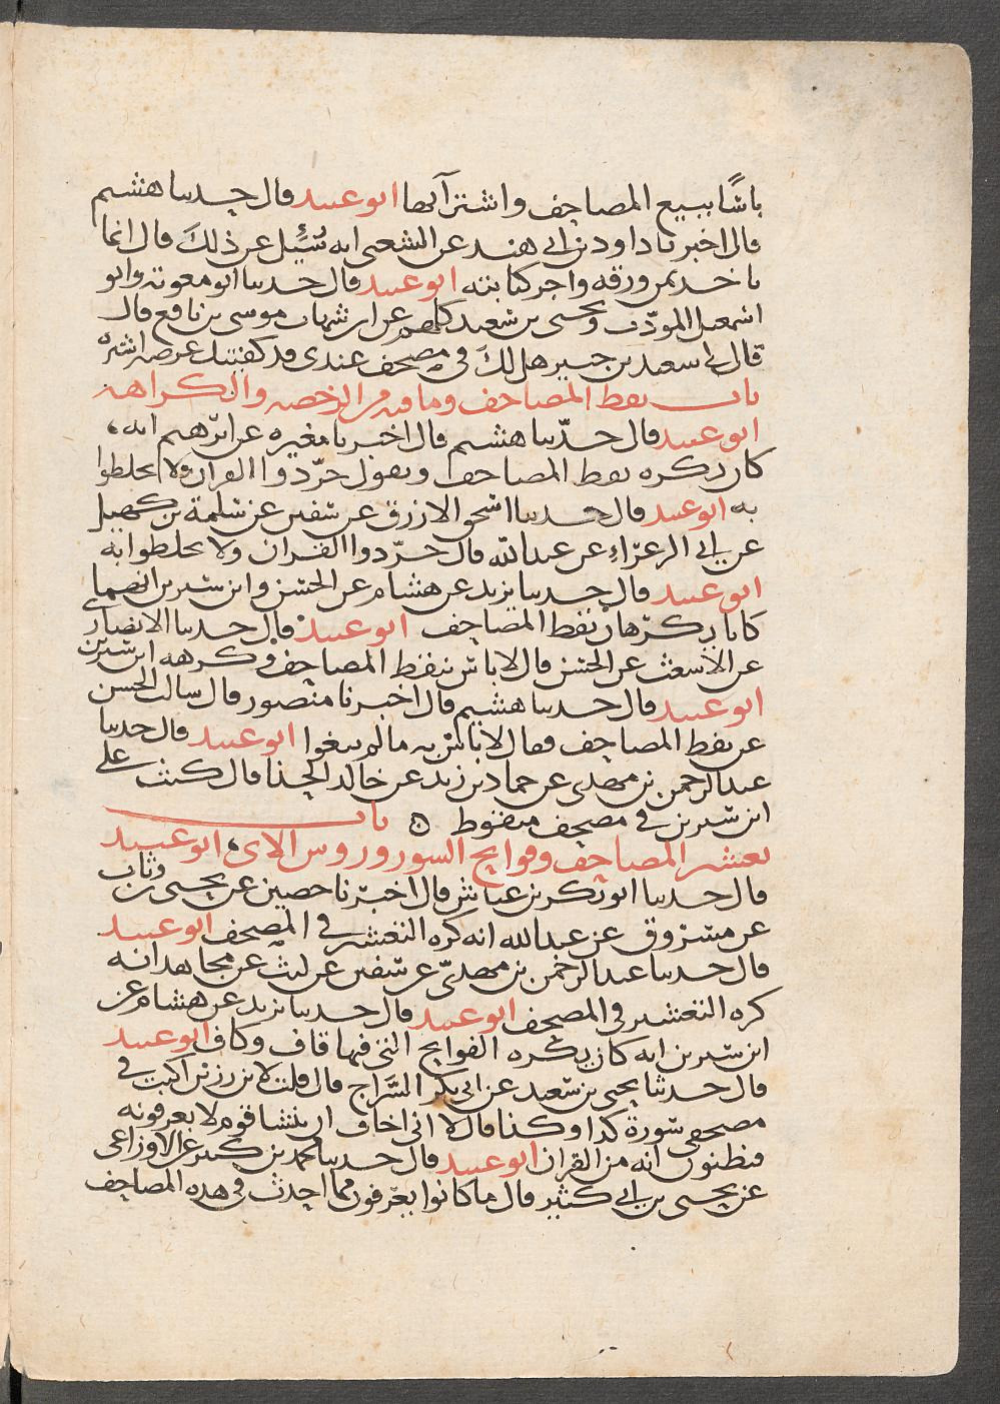 باسًا ببيع المصاحف واشترآىها ابو عبيد قال حدثنا هشيم
قال اخبرنا داود بن ابي هند عن الشعبي انه سُئِل عن ذلك قال انما
ياخذ ثمن ورقه واجر كتابته ابو عبيد قال حدثنا ابو معوية وابو
اسمعيل المودّب ويحيى بن سعيد كلهم عن ابن شهاب موسى بن نافع قال
قال لي سعيد بن جبير هل لك في مصحف عندي قد كفيتك عرضه اشتره
باب نقط المصاحف وما فيه من الرخصه والكراهه
ابو عبيد قال حدّثنا هشيم قال اخبرنا مغيره عن ابرهيم انه
كان يكره نقط المصاحف ويقول جرّدوا القران ولا تخلطوا
به ابو عبيد قال حدثنا اسحق الازرق عن سفين عن سلمة بن كهيل
عن ابي الزعرّاء عن عبد الله قال جرّدوا القران ولا تخلطوا به
ابو عبيد قال حدثنا يزيد عن هشام عن الحسن وابن سيرين انهما
كانا يكرهان نقط المصاحف ابو عبيد قال حدثنا الانصاري
عن الاشعث عن الحسن قال لا باس بنقط المصاحف وكرهه ابن سيرين
ابو عبيد قال حدثنا هشيم قال اخبرنا منصور قال سالت الحسن
عن نقط المصاحف فقال لا باس به ما لم يبغوا ابو عبيد قال حدثنا
عبد الرحمن بن مهدي عن حماد بن زيد عن خالد الحذا قال كنت على
ابن سيرين في مصحف منقوط ه باب
تعشير المصاحف وفواتح السور وروس الاي ابو عبيد
قال حدثنا ابو بكر بن عياش قال اخبرنا حصين عن يحيى بن وثاب
عن مسروق عن عبد الله انه كره التعشير في المصحف ابو عبيد
قال حدثنا عبد الرحمن بن مهديّ عن سفين عن ليث عن مجاهد انه
كره التعشير في المصحف ابو عبيد قال حدثنا يزيد عن هشام عن
ابن سيرين انه كان يكره الفواتح التي فيها قاف وكاف ابو عبيد
قال حدثنا يحيى بن سعيد عن ابي بكر السَّراج قال قلت لابي رزين اكتب في
مصحفي سورة كذا وكذا قال لا اني اخاف ان ينشا قوم لا يعرفونه
فيظنون انه من القران ابو عبيد قال حدثنا محمد بن كثير عن الاوزاعي
عن يحيى بن ابي كثير قال ما كانوا يعرفون مما احدث في هذه المصاحف